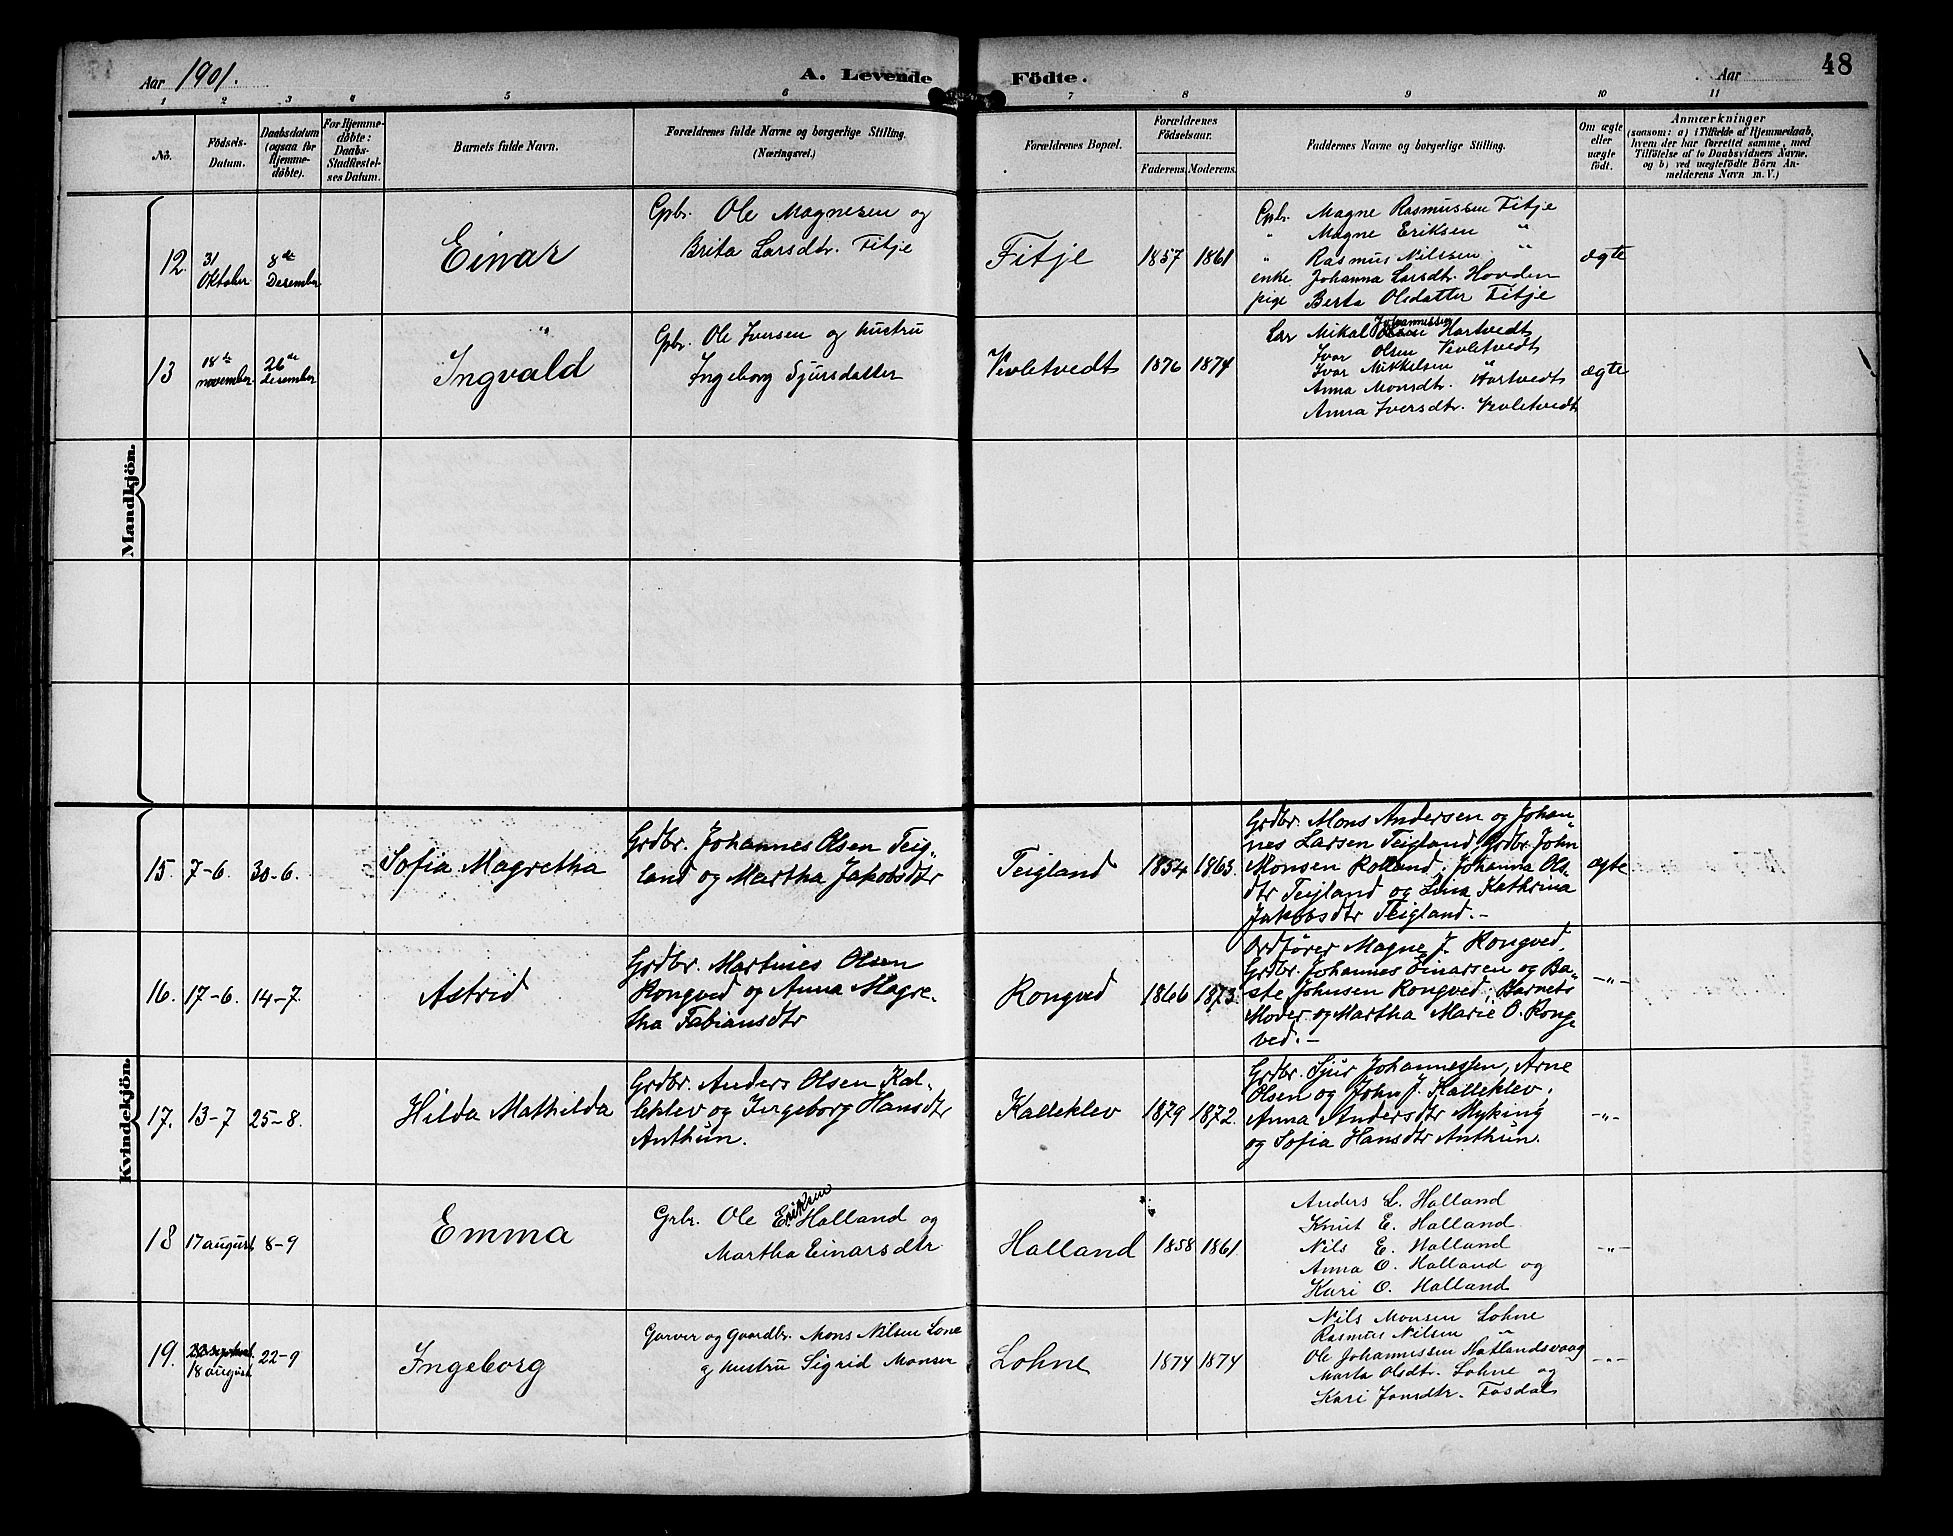 Aar 1901.
A. Levende Födte.
Aar
48
1 2 3 4 5 6 7 8 9 10 11
No.
Födsels-
Datum.
Daabsdatum
(ogsaa for
Hjemme-
døbte).
For Hjemme-
døbte:
Daabs-
Stadfæstel-
ses Datum.
Barnets fulde Navn.
Forældrenes fulde Navne og borgerlige Stilling.
(Næringsvei.)
Forældrenes Bopæl.
Forældrenes
Födselsaar.
Faderens. Moderens.
Faddernes Navne og borgerlige Stilling.
Om ægte
eller
uægte
födt.
Anmærkninger
(saasom: a) i Tilfælde af Hjemmedaab,
hvem der har forrettet samme, med
Tilföielse af to Daabsvidners Navne,
og b) ved uægtefödte Börn An-
melderens Navn m. V.)
Mandkjön.
12.
31
Oktober
8de
Desember
Einar
Gpbr. Ole Magnesen og
Brita Larsdtr. Fitje
Fitje
1857 1861
Gpbr. Magne Rasmussen Fitje
" Magne Eriksen "
" Rasmus Nilssen "
enke Johanna Larsdtr. Hovden
pige Berta Olsdatter Fitje
ægte
13
18de
november
26de
desember
Ingvald
Gpbr. Ole Iversen og hustru
Ingeborg Sjursdatter
Vevletvedt
1876 1874
Mikal Johannessen Hartvedt
Ivar Olsen Vevletvedt
Ivar Mikkelsen "
Anna Monsdtr. Hartvedt
Anna Iversdtr. Vevletvedt
ægte
Kvindekjön.
15. 7-6. 30-6.
Sofia Magretha
Grdbr. Johannes Olsen Teig-
land og Martha Jakobsdtr
Teigland
1854 1863.
Grdbr. Mons Andersen og Johan-
nes Larsen Teigland, Grdbr. John
Monsen Rolland, Johanna Ols-
dtr Teigland og Lina Kathrina
Jakobsdtr Teigland.-
ægte
16. 17-6. 14-7.
Astrid
Grdbr. Martines Olsen
Rongved og Anna Magre-
tha Fabiansdtr
Rongved
1866 1873.
Ordfører Magne J. Rongved,
Grdbr. Johannes Einarsen og Ba-
ste Johnsen Rongved, Barnets
Moder og Martha Marie O. Rong-
ved.-
-"-
17. 13-7 25-8.
Hilda Mathilda
Grdbr. Anders Olsen Kal-
leklev og Ingeborg Hansdtr
Anthun.
Kalleklev
1879 1872.
Grdbr. Sjur Johannessen, Arne
Olsen og John J. Kalleklev,
Anna Andersdtr Myking
og Sofia Hansdtr Anthun.
-"-
18 17 august 8-9
Emma
Grbr. Ole Eriksen Halland og
Martha Einarsdtr
Halland
1858 1861.
Anders L. Halland
Knut E. Halland
Nils E. Halland
Anna O. Halland og
Kari O. Halland
-"-
19.
18 august
22-9
Ingeborg
Garver og Gaardbr. Mons Nilsen Lone
og hustru Sigrid Monsen
Lohne
1874 1874
Nils Monsen Lohne
Rasmus Nilsen "
Ole Johannessen Natlandsvaag
Marta Olsdtr. Lohne og
Kari Jonsdtr. Fosdal
-"-